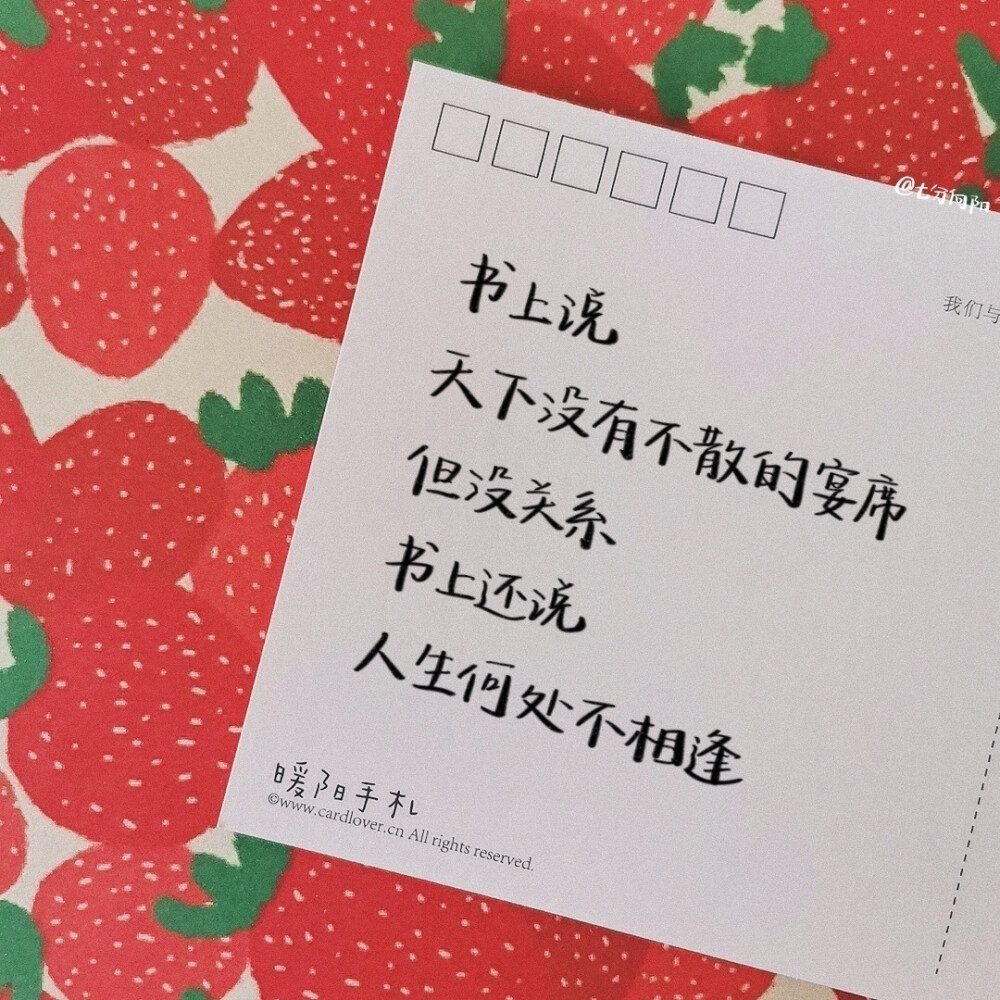 @七分向阳
我们与
书上说
天下没有不散的宴席
但没关系
书上还说
人生何处不相逢
暖阳手札
©www.cardlover.cn All rights reserved.